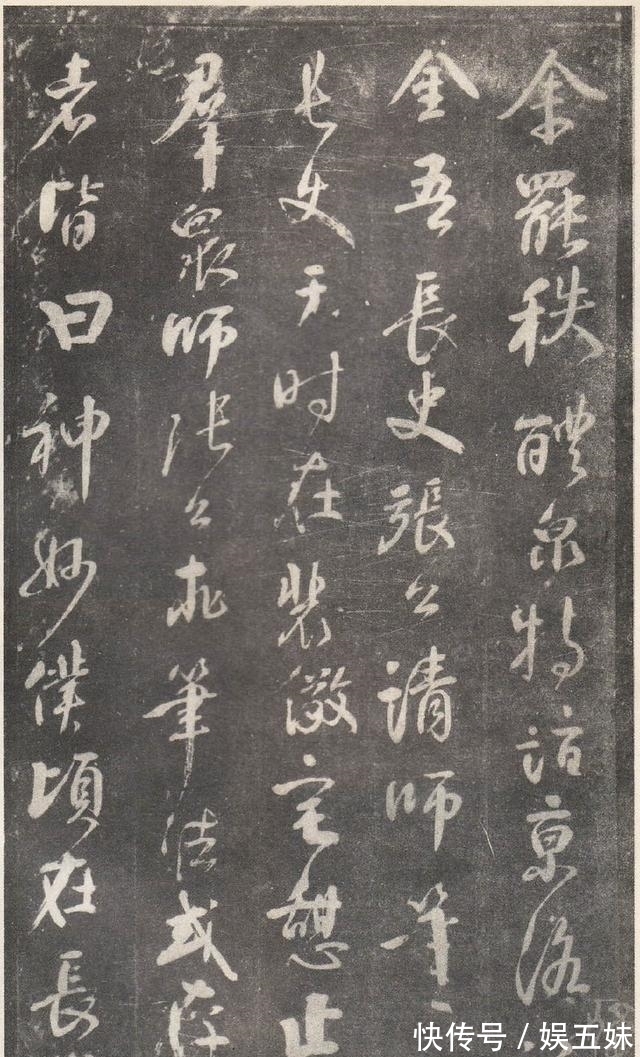 余罷秩醴泉特詣京洛
金吾長史張公請師筆
長史于时在裴儆宅憩止
羣眾師張公求筆法或存
者皆曰神妙僕頃在長
快传号 / 娱五妹